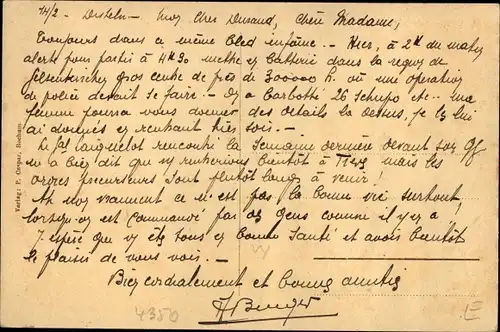 14/2 - Disteln - Mon Cher Durand, Chère Madame,
Toujours dans ce même bled infâme. - Hier, à 2h du matin
alerte pour partir à 4h30 mettre en batterie dans la région de
Gelsenkirchen gros centre de près de 300000 h. où une opération
de police devait se faire. - On a barboté 26 Schupo etc... ma
femme pourra vous donner des détails là dessus, je les lui
ai donnés en rentrant hier soir. -
Le Gal rencontré la semaine dernière devant
m'a bien dit que nous rentrerions bientôt à mais les
ordres précurseurs sont plutôt longs à venir!
Ah non vraiment ce n'est pas la bonne vie surtout
lorsqu'on est commandé par des gens comme il y en a
J'espère que vous êtes tous en bonne santé et avoir bientôt
le plaisir de vous voir. -
Bien cordialement et bonnes amitiés
4350
Verlag: P. Caspar, Bochum.